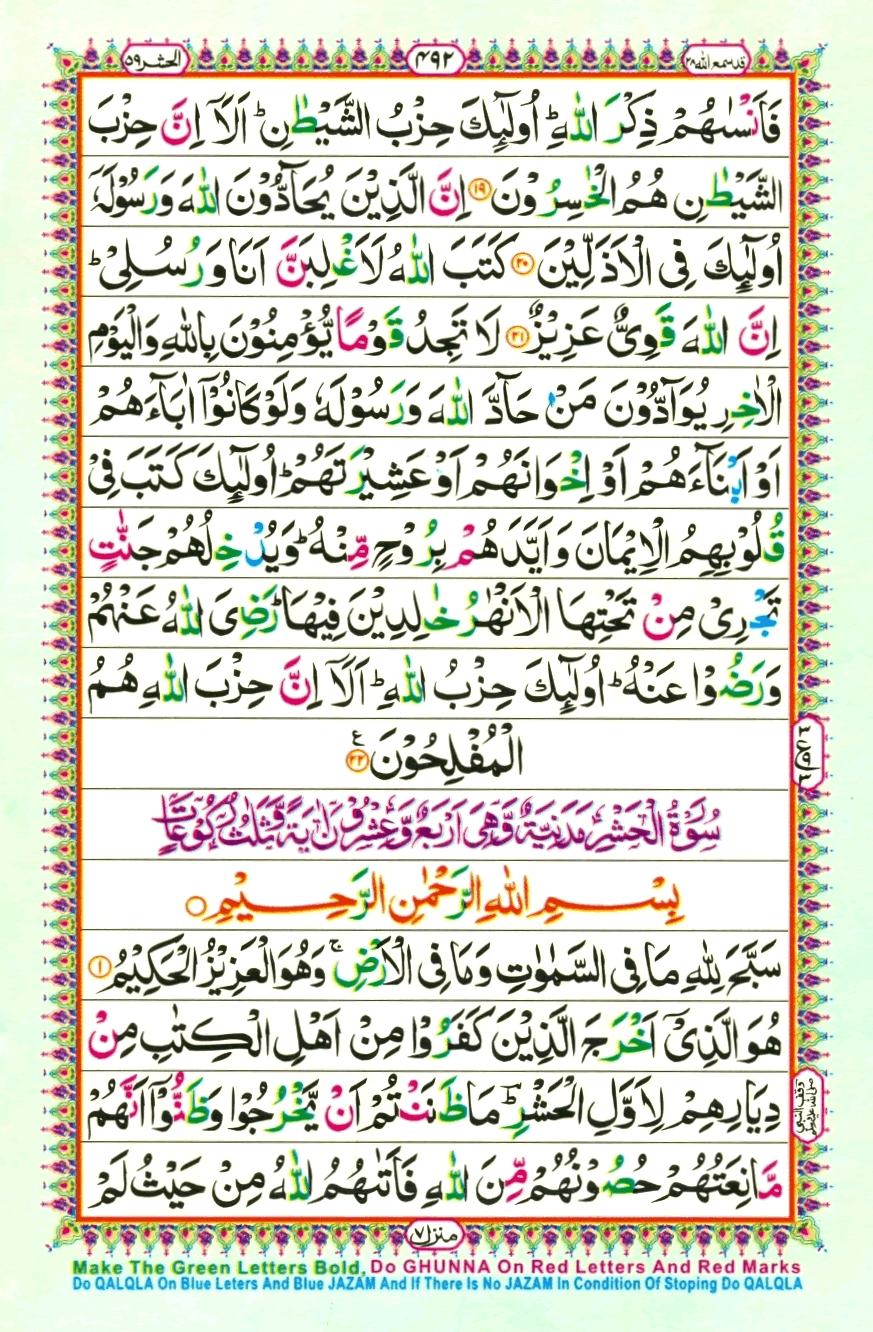 قد سمع الله ۲۸
۴۹۲
الحشر ۵۹
فَاَنْسٰىهُمْ ذِكْرَ اللّٰهِ ؕ اُولٰٓئِكَ حِزْبُ الشَّيْطٰنِ ؕ اَلَاۤ اِنَّ حِزْبَ
الشَّيْطٰنِ هُمُ الْخٰسِرُوْنَ ۱۹ اِنَّ الَّذِيْنَ يُحَآدُّوْنَ اللّٰهَ وَ رَسُوْلَهٗۤ
اُولٰٓئِكَ فِى الْاَذَلِّيْنَ ۲۰ كَتَبَ اللّٰهُ لَاَغْلِبَنَّ اَنَا وَ رُسُلِىْ ؕ
اِنَّ اللّٰهَ قَوِىٌّ عَزِيْزٌ ۲۱ لَا تَجِدُ قَوْمًا يُّؤْمِنُوْنَ بِاللّٰهِ وَالْيَوْمِ
الْاٰخِرِ يُوَآدُّوْنَ مَنْ حَآدَّ اللّٰهَ وَ رَسُوْلَهٗ وَلَوْ كَانُوْۤا اٰبَآءَهُمْ
اَوْ اَبْنَآءَهُمْ اَوْ اِخْوَانَهُمْ اَوْ عَشِيْرَتَهُمْ ؕ اُولٰٓئِكَ كَتَبَ فِىْ
قُلُوْبِهِمُ الْاِيْمَانَ وَ اَيَّدَهُمْ بِرُوْحٍ مِّنْهُ ؕ وَيُدْخِلُهُمْ جَنّٰتٍ
تَجْرِىْ مِنْ تَحْتِهَا الْاَنْهٰرُ خٰلِدِيْنَ فِيْهَا ؕ رَضِىَ اللّٰهُ عَنْهُمْ
وَ رَضُوْا عَنْهُ ؕ اُولٰٓئِكَ حِزْبُ اللّٰهِ ؕ اَلَاۤ اِنَّ حِزْبَ اللّٰهِ هُمُ
الْمُفْلِحُوْنَ ۲۲ ع
سُوْرَةُ الْحَشْرِ مَدَنِيَّةٌ وَّهِىَ اَرْبَعٌ وَّعِشْرُوْنَ اٰيَةً وَّثَلٰثُ رُكُوْعَاتٍ
بِسْمِ اللّٰهِ الرَّحْمٰنِ الرَّحِيْمِ
سَبَّحَ لِلّٰهِ مَا فِى السَّمٰوٰتِ وَمَا فِى الْاَرْضِ ۚ وَهُوَ الْعَزِيْزُ الْحَكِيْمُ ۱
هُوَ الَّذِىْۤ اَخْرَجَ الَّذِيْنَ كَفَرُوْا مِنْ اَهْلِ الْكِتٰبِ مِنْ
دِيَارِهِمْ لِاَوَّلِ الْحَشْرِ ؔ مَا ظَنَنْتُمْ اَنْ يَّخْرُجُوْا وَظَنُّوْۤا اَنَّهُمْ
مَّانِعَتُهُمْ حُصُوْنُهُمْ مِّنَ اللّٰهِ فَاَتٰىهُمُ اللّٰهُ مِنْ حَيْثُ لَمْ
منزل ۷
Make The Green Letters Bold, Do GHUNNA On Red Letters And Red Marks
Do QALQLA On Blue Leters And Blue JAZAM And If There Is No JAZAM In Condition Of Stoping Do QALQLA